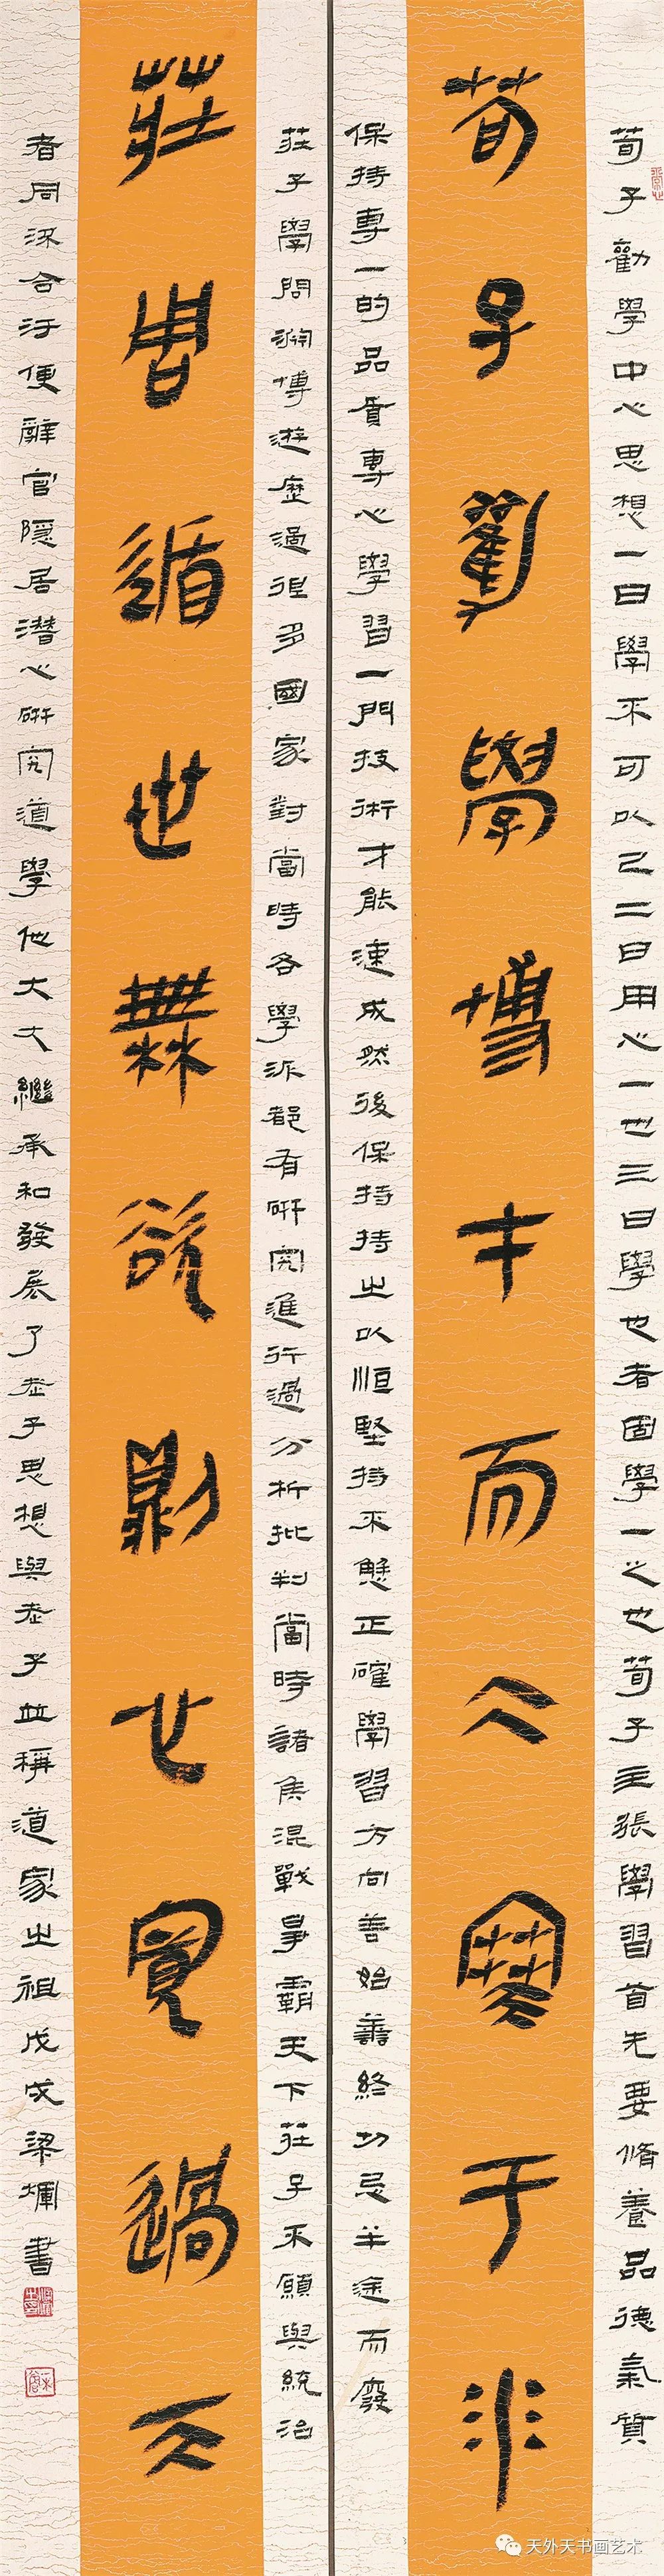 荀子勸學中心思想一曰學不可以已二曰用心一也三曰學也者固學一之也荀子主張學習首先要脩養品德氣質
荀子勸學博才而于非
保持專一的品質專心學習一門技術才能速成然後保持持之以恒堅持不懈正確學習方向善始善終切忌半途而廢
莊子學問淵博遊歷過很多國家對當時各學派都有研究進行過分析批判當時諸侯混戰爭霸天下莊子不願與統治
莊周遁世無欲則世寬過
者同流合汙便辭官隱居潛心研究道學他大大繼承和發展了老子思想與老子並稱道家之祖戊戌梁書
天外天书画艺术